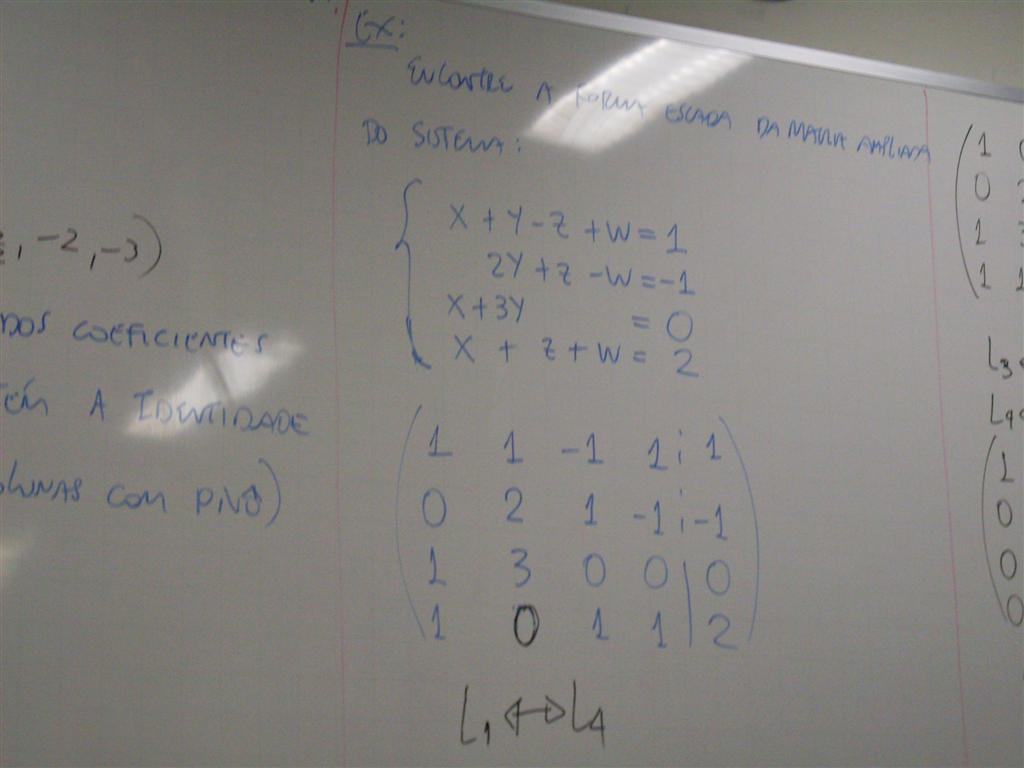 , -2, -3)
DOS COEFICIENTES
A IDENTIDADE
COM PIVÔ)
Ex:
ENCONTRE A FORMA ESCADA DA MATRIZ AMPLIADA
DO SISTEMA:
X + Y - Z + W = 1
2Y + Z - W = -1
X + 3Y = 0
X + Z + W = 2
1 1 -1 1 ¦ 1
0 2 1 -1 ¦ -1
1 3 0 0 | 0
1 0 1 1 | 2
L1 ↔ L4
1
0
1
1 1
L3
L4
1
0
0
0